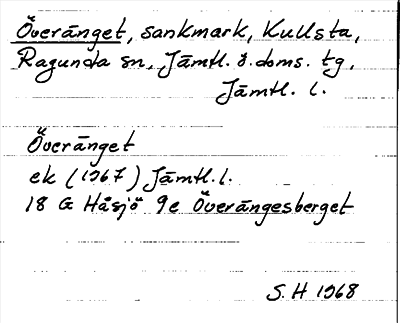 Överänget, sankmark, Kullsta,
Ragunda sn, Jämtl. ö. doms. tg,
Jämtl. l.
Överänget
ek (1967) Jämtl. l.
18 G Håsjö 9e Överängesberget
S. H 1968